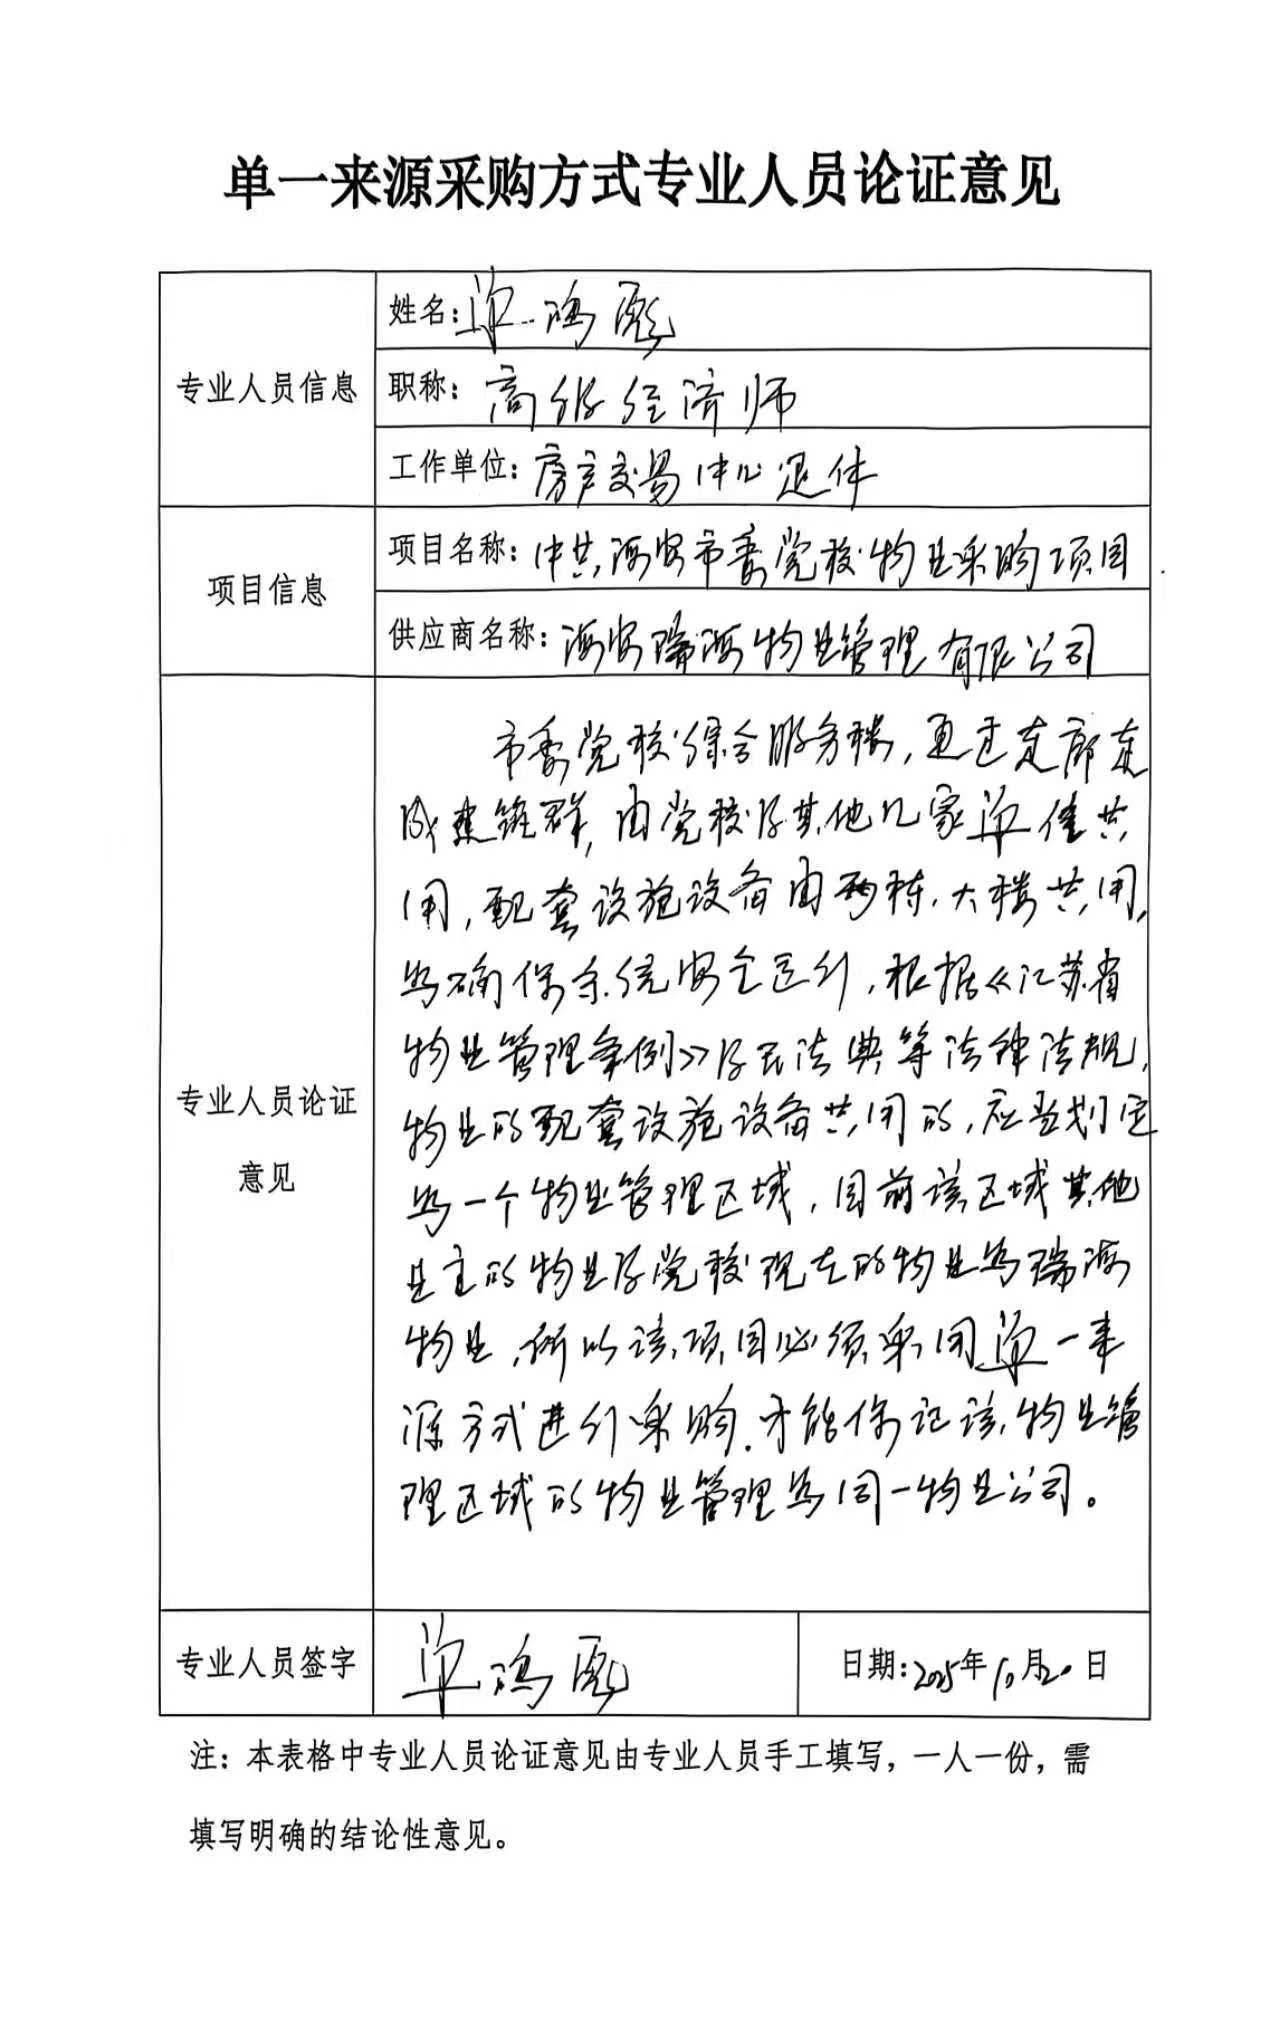 单一来源采购方式专业人员论证意见
专业人员信息
姓名:单鸿彪
职称:高级经济师
工作单位:房产交易中心退休
项目信息
项目名称:中共海安市委党校物业采购项目
供应商名称:海安瑞海物业管理有限公司
专业人员论证
意见
市委党校综合服务楼,通过走廊连
成建筑群,由党校及其他几家单位共
用,配套设施设备由两栋大楼共用,
为确保系统安全运行,根据《江苏省
物业管理条例》及民法典等法律法规,
物业的配套设施设备共用的,应当划定
为一个物业管理区域,目前该区域其他
业主的物业及党校现在的物业为瑞海
物业,所以该项目必须采用单一来
源方式进行采购.才能保证该物业管
理区域的物业管理为同一物业公司。
专业人员签字
单鸿彪
日期:2025年10月20日
注:本表格中专业人员论证意见由专业人员手工填写,一人一份,需
填写明确的结论性意见。